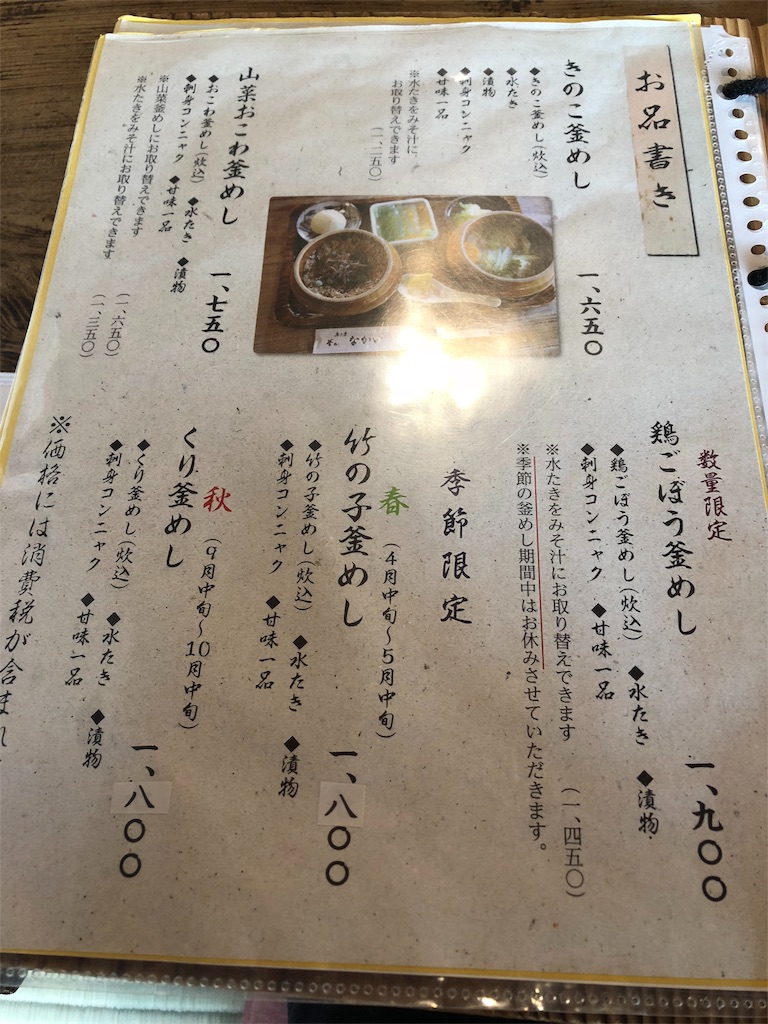 お品書き
きのこ釜めし
一、六五〇
◆きのこ釜めし（炊込）
◆水たき
◆漬物
◆刺身コンニャク
◆甘味一品
※水たきをみそ汁に、
お取り替えできます
（一、二五〇）
山菜おこわ釜めし
一、七五〇
◆おこわ釜めし（炊込） ◆水たき ◆漬物
◆刺身コンニャク ◆甘味一品
※山菜釜めしにお取り替えできます
（一、六五〇）
※水たきをみそ汁にお取り替えできます
（一、三五〇）
なかい
数量限定
鶏ごぼう釜めし
一、九〇〇
◆鶏ごぼう釜めし（炊込） ◆水たき ◆漬物
◆刺身コンニャク ◆甘味一品
※水たきをみそ汁にお取り替えできます （一、四五〇）
※季節の釜めし期間中はお休みさせていただきます。
季節限定
春 （4月中旬〜5月中旬）
竹の子釜めし
一、八〇〇
◆竹の子釜めし（炊込） ◆水たき ◆漬物
◆刺身コンニャク ◆甘味一品
秋 （9月中旬〜10月中旬）
くり釜めし
一、八〇〇
◆くり釜めし（炊込） ◆水たき ◆漬物
◆刺身コンニャク ◆甘味一品
※価格には消費税が含まれ